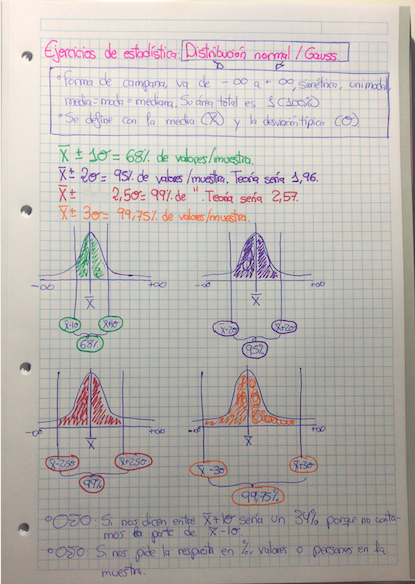 Ejercicios de estadística: Distribución normal / Gauss.
• Forma de campana, va de -∞ a +∞, simétrica, unimodal,
media=moda=mediana. Su área total es 1 (100%)
• Se define con la media (X̄) y la desviación típica (σ).
X̄ ± 1σ = 68% de valores/muestra.
X̄ ± 2σ = 95% de valores/muestra. Teoría sería 1,96.
X̄ ± 2,5σ = 99% de " . Teoría sería 2,57.
X̄ ± 3σ = 99,75% de valores/muestra.
-∞ X̄ +∞
X̄-1σ X̄+1σ
68%
-∞ X̄ +∞
X̄-2σ X̄+2σ
95%
-∞ X̄ +∞
X̄-2,5σ X̄+2,5σ
99%
-∞ X̄ +∞
X̄-3σ X̄+3σ
99,75%
• OJO: Si nos dicen entre X̄+1σ sería un 34% porque no conta-
mos la parte de X̄-1σ.
• OJO: Si nos pide la respuesta en %, valores o personas en la
muestra.